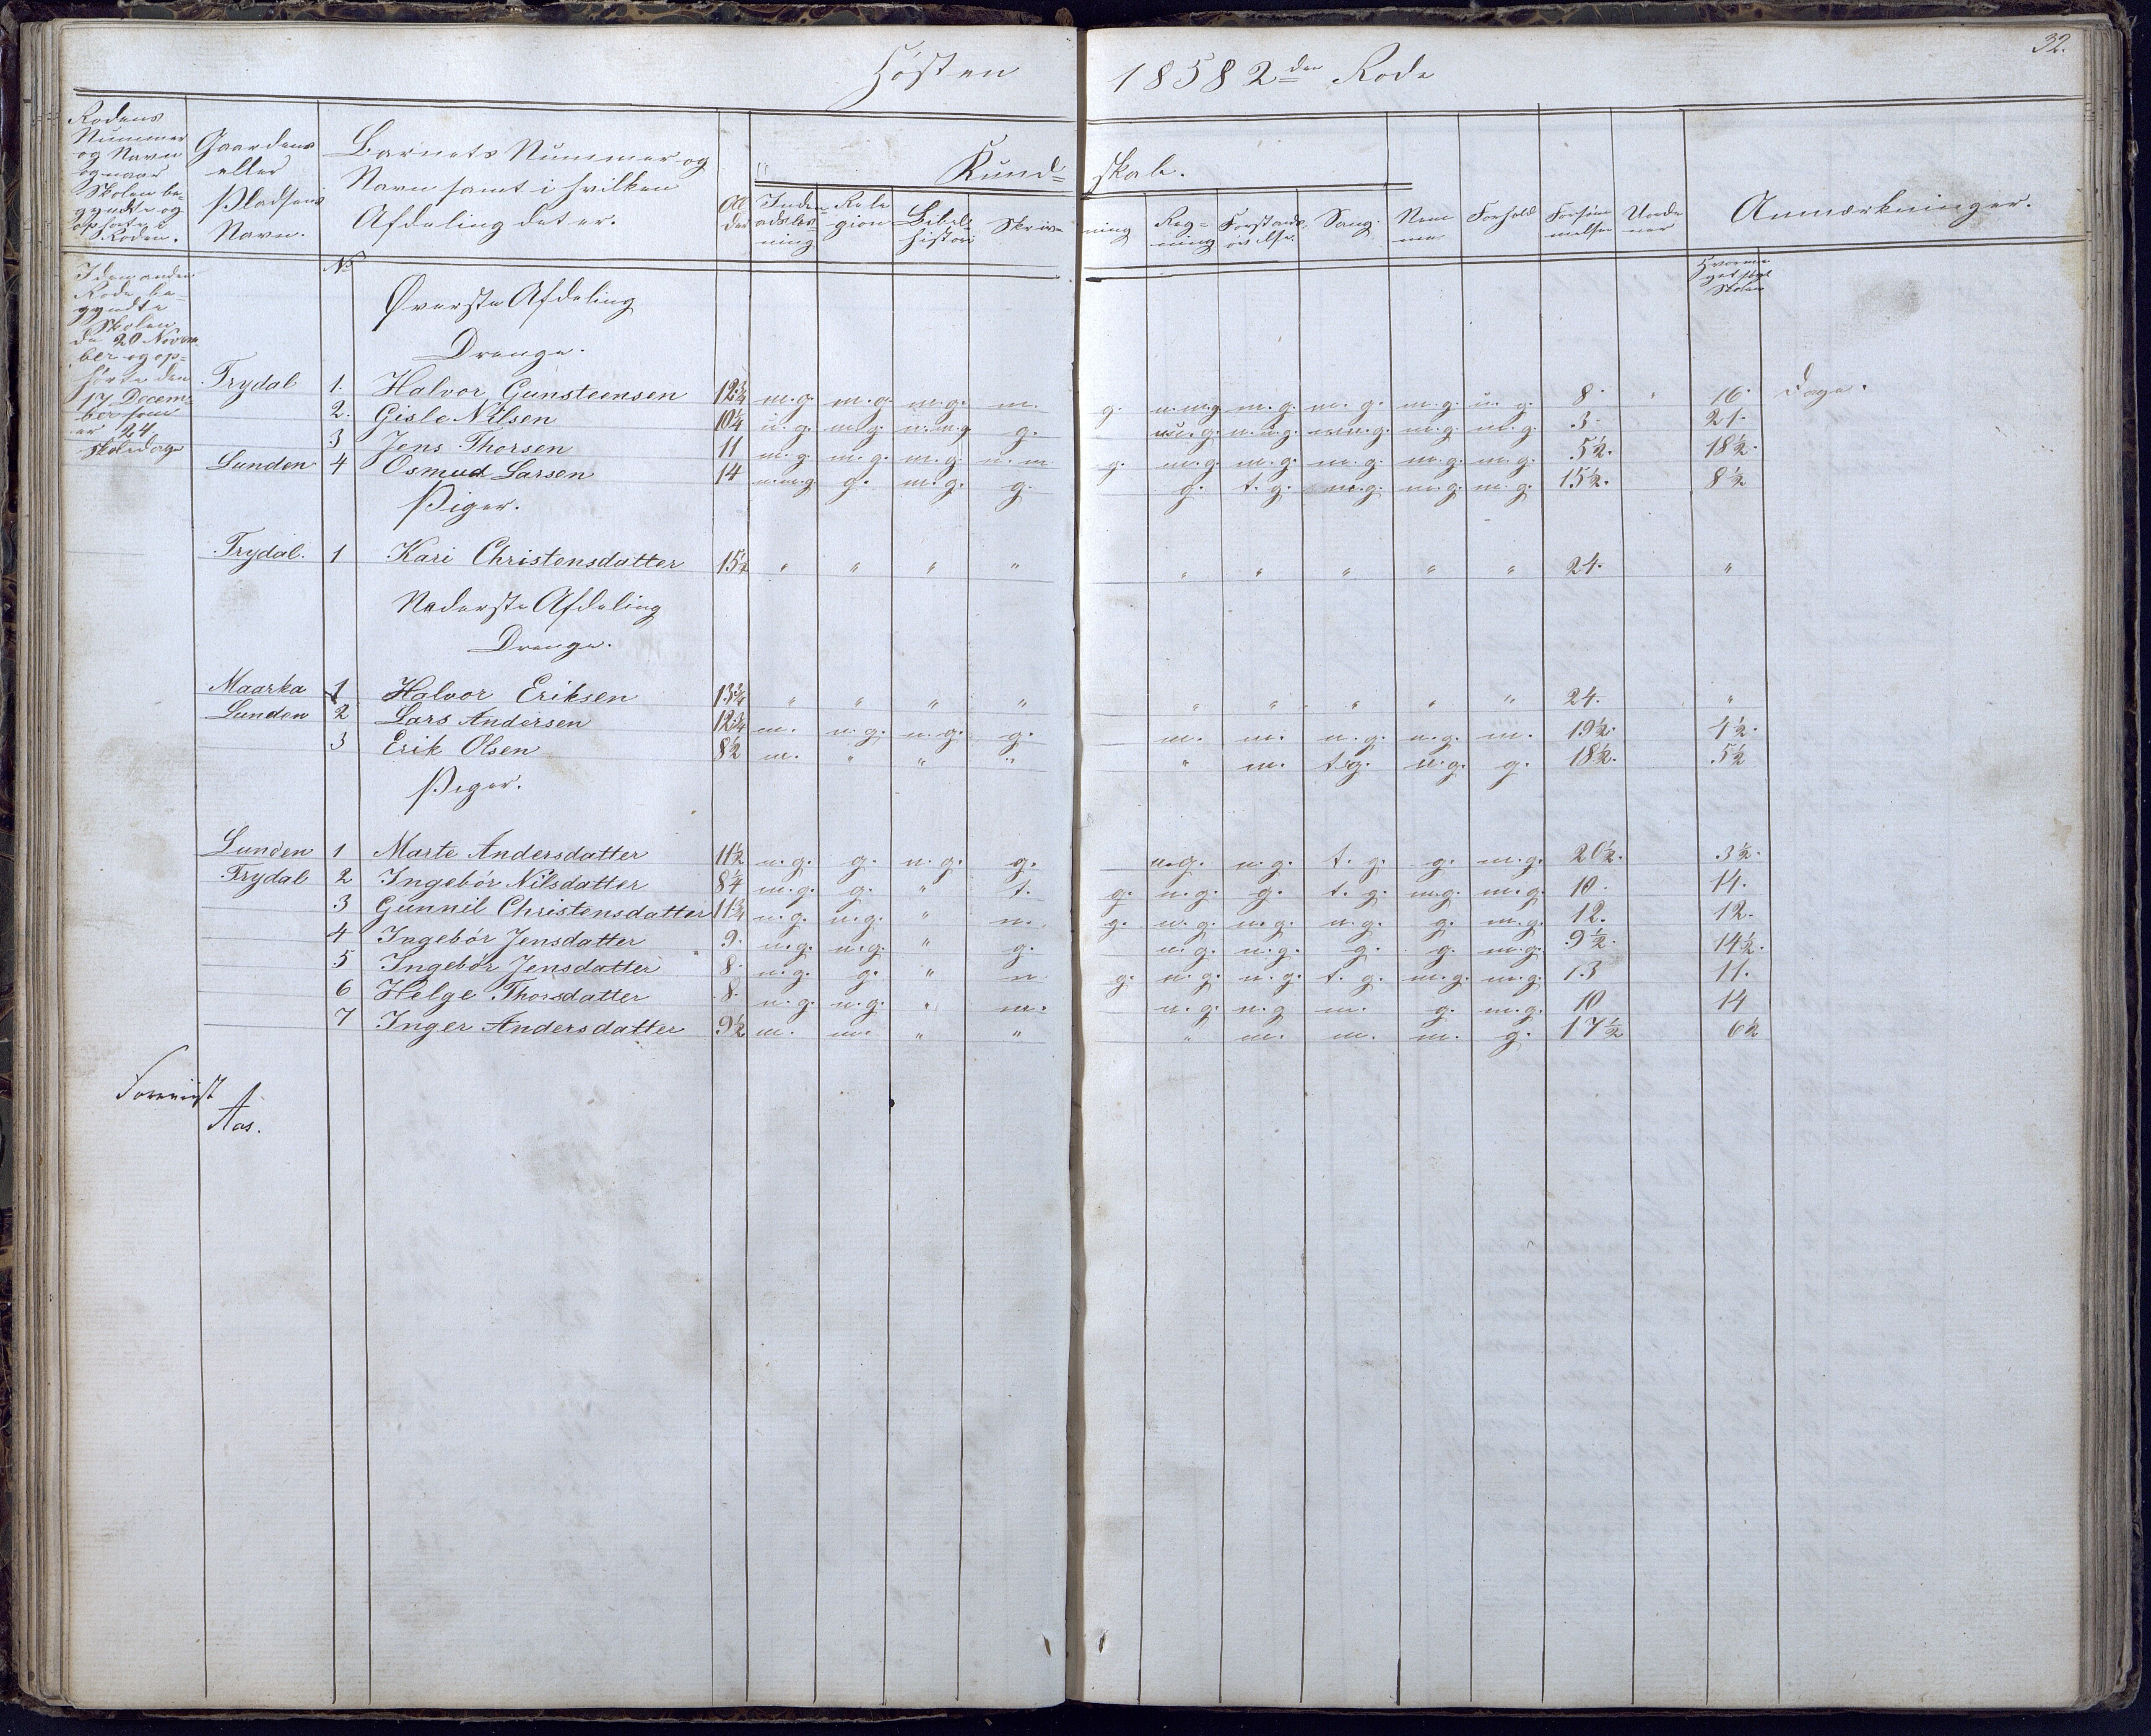 32.
Hösten 1858 2den Rode
Rodens Nummer og Navn og naar Skolen begyndte og ophørte i Roden.
Gaardens eller Pladsens Navn.
Barnets Nummer og Navn samt i hvilken Afdeling det er.
Alder
Kundskab.
Indenadslæsning
Relegion
Bibelhistori
Skrivning
Regning
Forstandsövelse
Sang
Nemme
Forhold
Forsömmelse
Anmærkninger.
I den anden Rode begyndte Skolen de 20 November og ophørte den 17 December som er 24 skoledage
No
Øverste Afdeling
Drenge.
Trydal 1. Halvor Gunsteensen 12¾ m.g. m.g. m.g. m. g. m.g. m.g. m.g. 8. 16. Dage.
2. Gisle Nilsen 10¼ g. 3. 21.
3 Jens Thorsen 11 m.g. m.g. m.g. g. m.g. m.g. m.g. m.g. m.g. 5½. 18½.
Lunden 4 Osmud Larsen 14 g. m.g. g. g. t.g. m.g. m.g. m.g. 15½. 8½
Piger.
Trydal. 1 Kari Christensdatter 15½ " " " " " " " " " 24. "
Nederste Afdeling
Drenge.
Maarka 1 Halvor Eriksen 13¾ " " " " " " " " " 24. "
Lunden 2 Lars Andersen 12¾ m. g. m. m. m. 19½. 4½.
3 Erik Olsen 8½ m. " " " " m. t.g. g. 18½. 5½
Piger.
Lunden 1 Marte Andersdatter 11½ g. g. t.g. g. m.g. 20½. 3½.
Trydal 2 Ingebör Nilsdatter 8¼ m.g. g. " t. g. g. t.g. m.g. m.g. 10. 14.
3 Gunnil Christensdatter 11¾ " g. g. m.g. 12. 12.
4 Ingebör Jensdatter 9. " g. g. g. m.g. 9½. 14½.
5 Ingebör Jensdatter 8. g. " g. t.g. m.g. m.g. 13 11.
6 Helge Thorsdatter 8. " m. m. g. m.g. 10 14
7 Inger Andersdatter 9½ m. m. " " " m. m. m. g. 17½ 6½
Forevist
Aas.